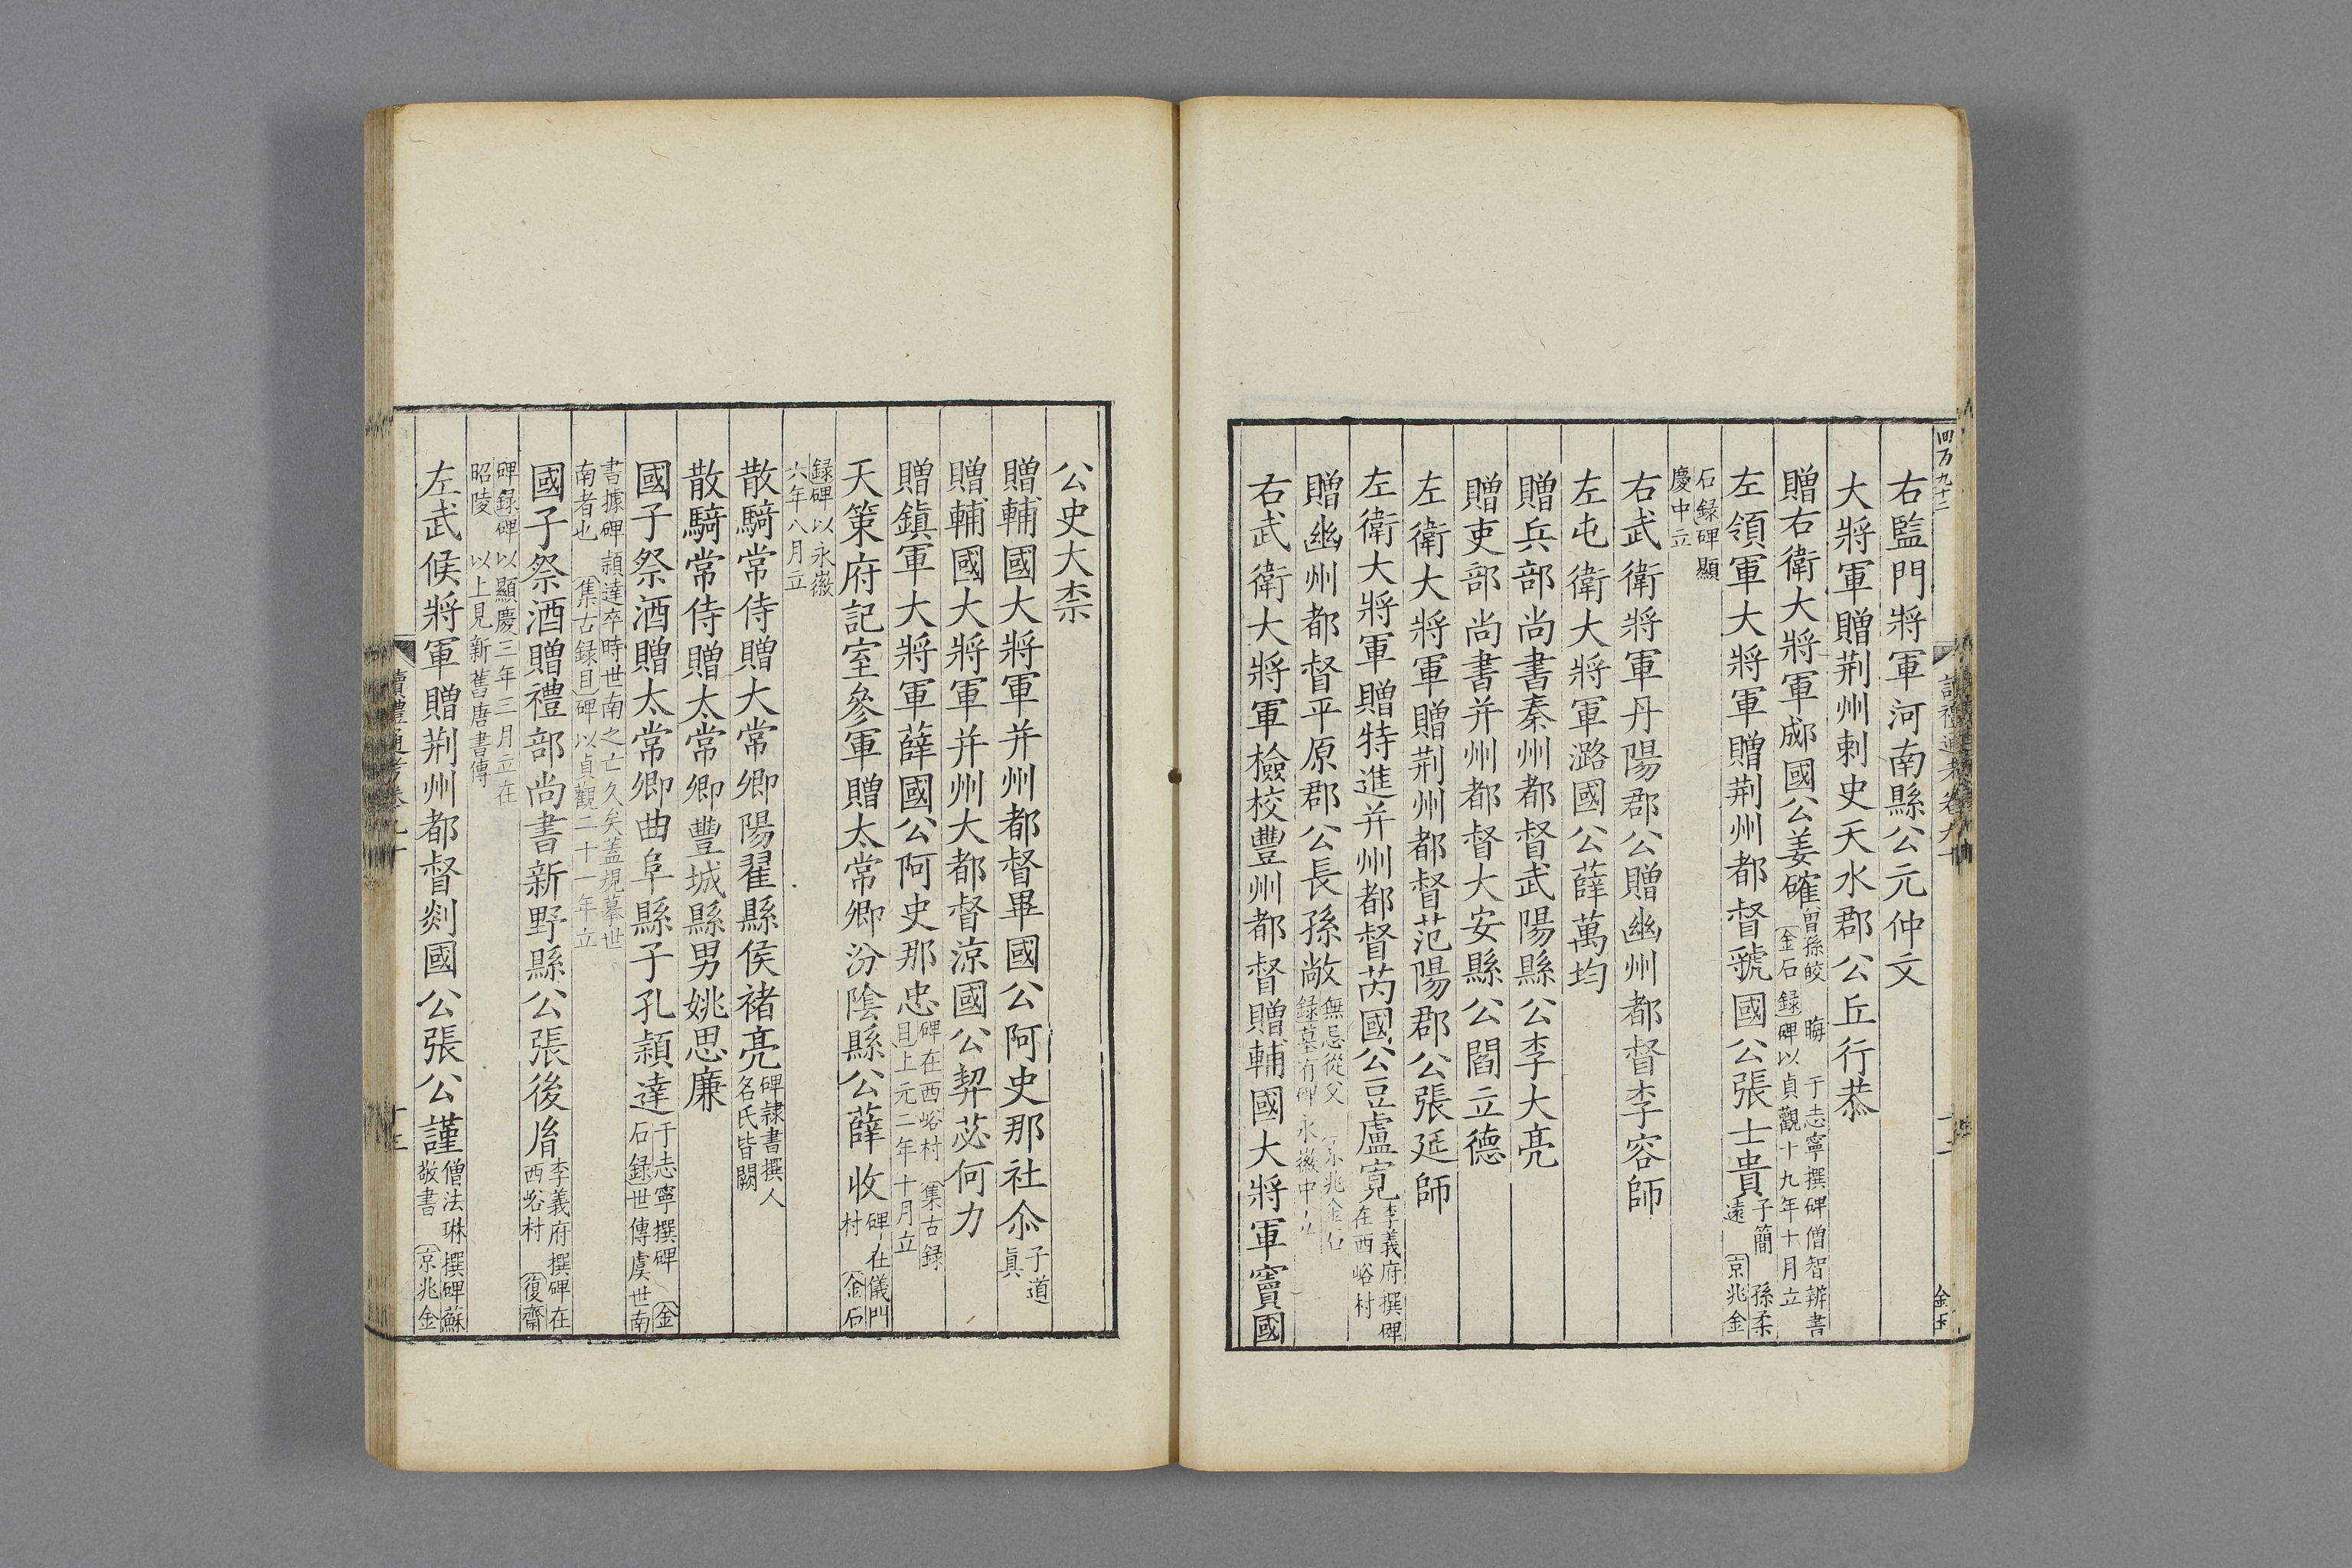 右監門將軍河南縣公元仲文
大將軍贈荆州刺史天水郡公丘行恭
贈右衛大將軍郕國公姜確曾孫皎 晦 于志寧撰碑僧智辨書
金石録碑以貞觀十九年十月立
左領軍大將軍贈荆州都督虢國公張士貴子簡 孫柔
遠 京兆金
石録碑顯
慶中立
右武衛將軍丹陽郡公贈幽州都督李容師
左屯衛大將軍潞國公薛萬均
贈兵部尚書秦州都督武陽縣公李大亮
贈吏部尚書并州都督大安縣公閻立德
左衛大將軍贈荆州都督范陽郡公張延師
左衛大將軍贈特進并州都督芮國公豆盧寬李義府撰碑
在西峪村
贈幽州都督平原郡公長孫敞無忌從父 京兆金石
録墓有碑永徽中立
右武衛大將軍檢校豐州都督贈輔國大將軍竇國
公史大柰
贈輔國大將軍并州都督畢國公阿史那社尒子道
眞
贈輔國大將軍并州大都督涼國公契苾何力
贈鎮軍大將軍薛國公阿史那忠碑在西峪村 集古録
目上元二年十月立
天策府記室參軍贈太常卿汾陰縣公薛收碑在儀門
村 金石
録碑以永徽
六年八月立
散騎常侍贈大常卿陽翟縣侯褚亮碑隷書撰人
名氏皆闕
散騎常侍贈太常卿豐城縣男姚思廉
國子祭酒贈太常卿曲阜縣子孔頴達于志寧撰碑 金
石録世傳虞世南
書據碑頴達卒時世南之亡久矣蓋規摹世
南者也 集古録目碑以貞觀二十一年立
國子祭酒贈禮部尚書新野縣公張後胤李義府撰碑在
西峪村 復齋
碑録碑以顯慶三年三月立在
昭陵 以上見新舊唐書傳
左武候將軍贈荆州都督郯國公張公謹僧法琳撰碑蘇
敬書 京兆金